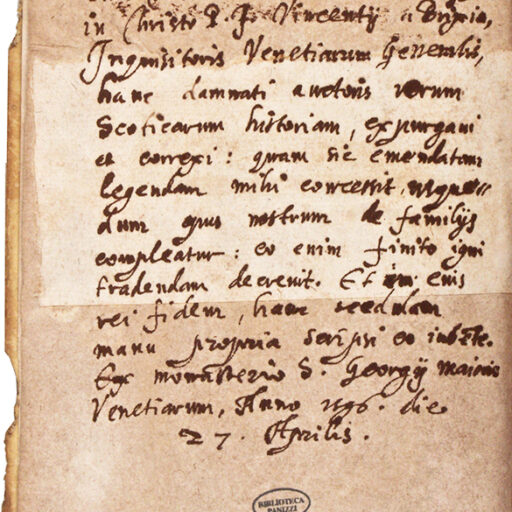 in Christo P. F. Vincentij a Brixia,
Inquisitoris Venetiarum Generalis,
hanc damnati auctoris rerum
Scoticarum historiam, expurgavi
et correxi: quam sic emendatam
legendam mihi concessit, usque
dum opus nostrum de familijs
compleatur: eo enim finito igni
tradendam decrevit. Et in eius
rei fidem, hanc scedulam
manu propria scripsi eo iubẽte.
Ex monasterio S. Georgij maioris
Venetiarum, Anno 1596. die
27. Aprilis.
BIBLIOTECA
PANIZZI